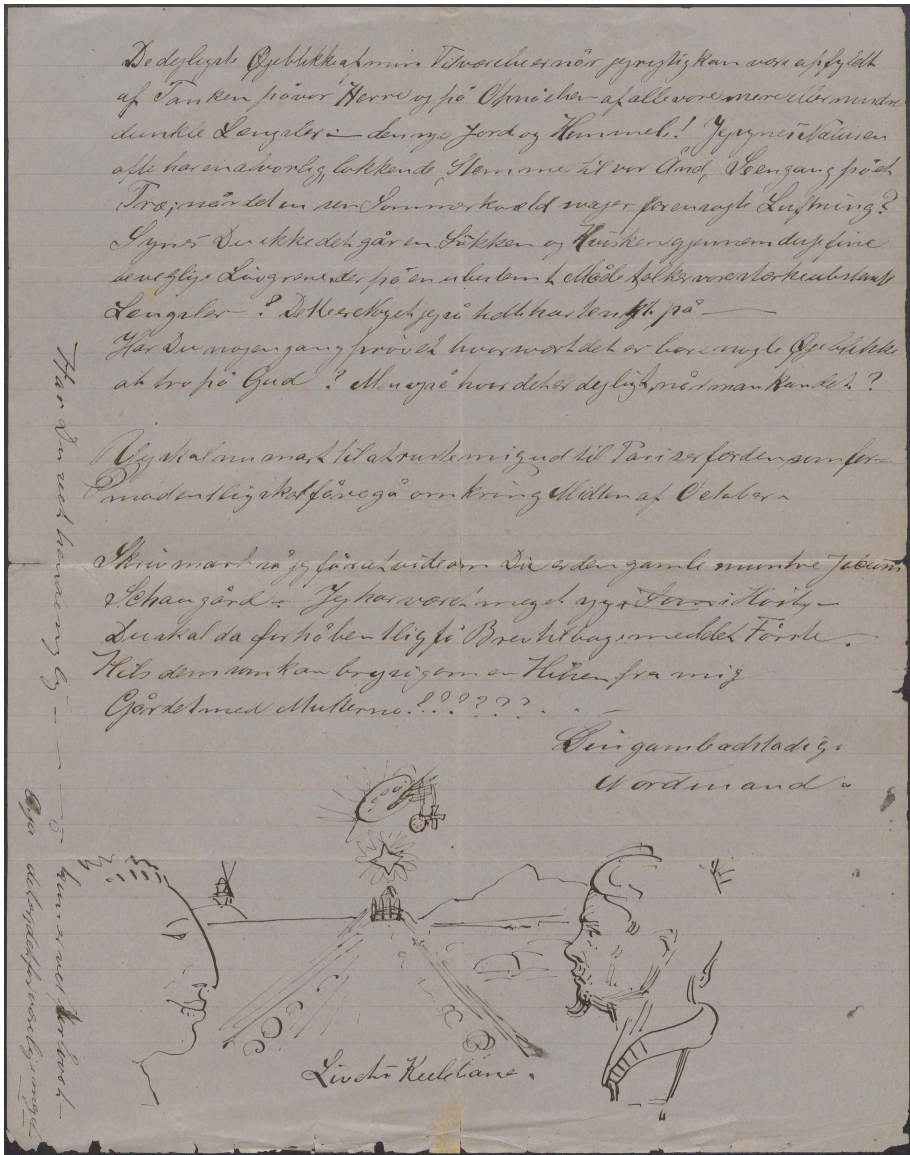 De dejligste Øjeblikke af min Tilværelse er når jeg rigtig kan være opfyldt
af Tanken på vor Herre og på Opnåelsen af alle vore mere eller mindre
dunkle Længsler – den nye Jord og Himmel! Jeg synes Naturen
ofte har en alvorlig, lokkende Stemme til vor Ånd, Se engang på et
Træ, når det en sen Sommerkvæld svajer for en sagte Luftning?
Synes Du ikke det går en Sukken og Hvisken gjennem dets fine
bevæglige Løvgrene, der på en ubestemt Måde tolker vore stærke ubestemte
Længsler – ? Dette er Noget jeg så tidt har tænkt på —
Har Du nogengang prøvet hvor svært det er bare nogle Øjeblikke
at tro på Gud ? Men også hvor det er dejligt, når man kan det ?
Jeg skal nu snart til at ruste mig ud til Pariserfærden, som for=
modentlig skal foregå omkring Midten af October –
Skriv snart så jeg får at vide om Du er den gamle muntre
Schaugård – Jeg har været meget syg i Høst –
Du skal da forhåbentlig få Brev tilbage med det Første –
Hils dem som kan bryr sig om en Hilsen fra mig
Går det med Mutterne!??????. . –
Din gamle adstadige
Nordmand.
Livets Keglebane.
Har Du set hende nylig — — — hun er vel forlovet –